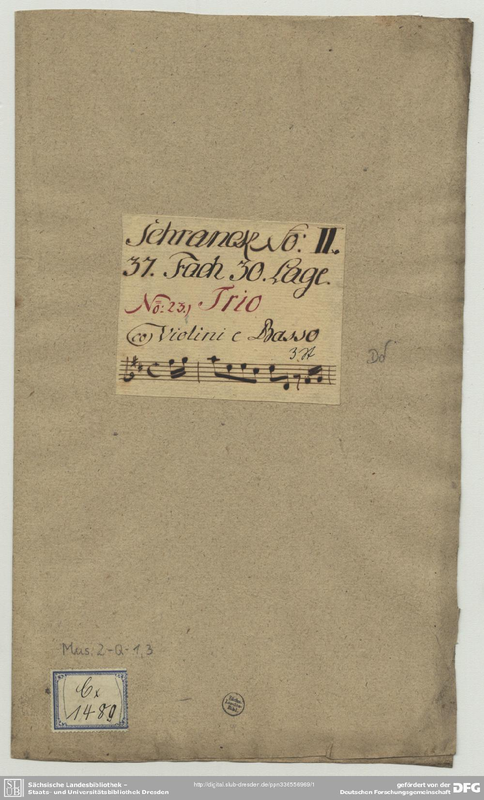 Schranck No: II.
37. Fach 30. Lage.
No: 23.) Trio
co Violini e Basso
3 St
D♂
Mus. 2-Q-1,3
Cx
1480
Sächsische Landesbibliothek –
Staats- und Universitätsbibliothek Dresden
http://digital.slub-dresden.de/ppn336556969/1
gefördert von der
Deutschen Forschungsgemeinschaft
DFG